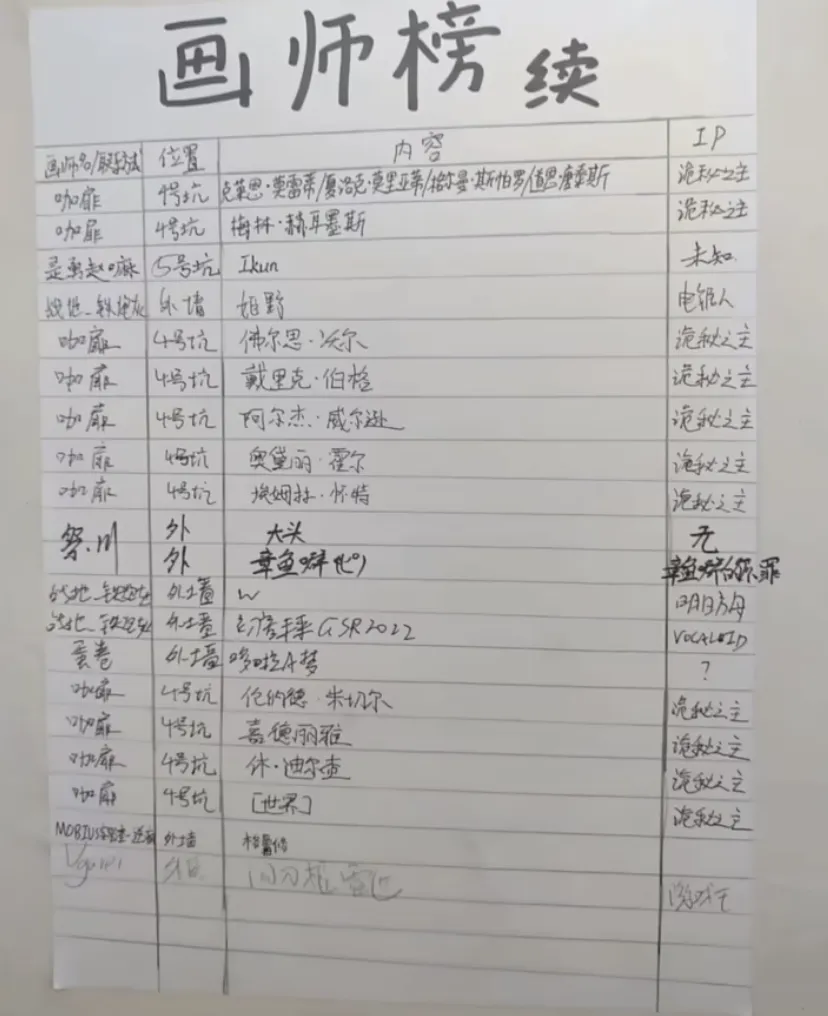 画师榜 续
画师名/联系方式 位置 内容 IP
咖扉 4号坑 克莱恩·莫雷蒂/夏洛克·莫里亚蒂/格尔曼·斯帕罗/道恩·唐泰斯 诡秘之主
咖扉 4号坑 梅林·赫耳墨斯 诡秘之主
是勇赵嘛 5号坑 Ikun 未知
战地_铁 外墙 姬野 电锯人
咖扉 4号坑 佛尔思·沃尔 诡秘之主
咖扉 4号坑 戴里克·伯格 诡秘之主
咖扉 4号坑 阿尔杰·威尔逊 诡秘之主
咖扉 4号坑 奥黛丽·霍尔 诡秘之主
咖扉 4号坑 埃姆林·怀特 诡秘之主
川 外 大头 无
外 章鱼噼 章鱼噼的原罪
战地_铁 外墙 W 明日方舟
战地_铁 外墙 GSR2022 VOCALOID
蛋卷 外墙 哆啦A梦 ?
咖扉 4号坑 伦纳德·米切尔 诡秘之主
咖扉 4号坑 嘉德丽雅 诡秘之主
咖扉 4号坑 休·迪尔查 诡秘之主
咖扉 4号坑 [世界] 诡秘之主
MOBIUS 外墙 格蕾修
闪刀姬 游戏王